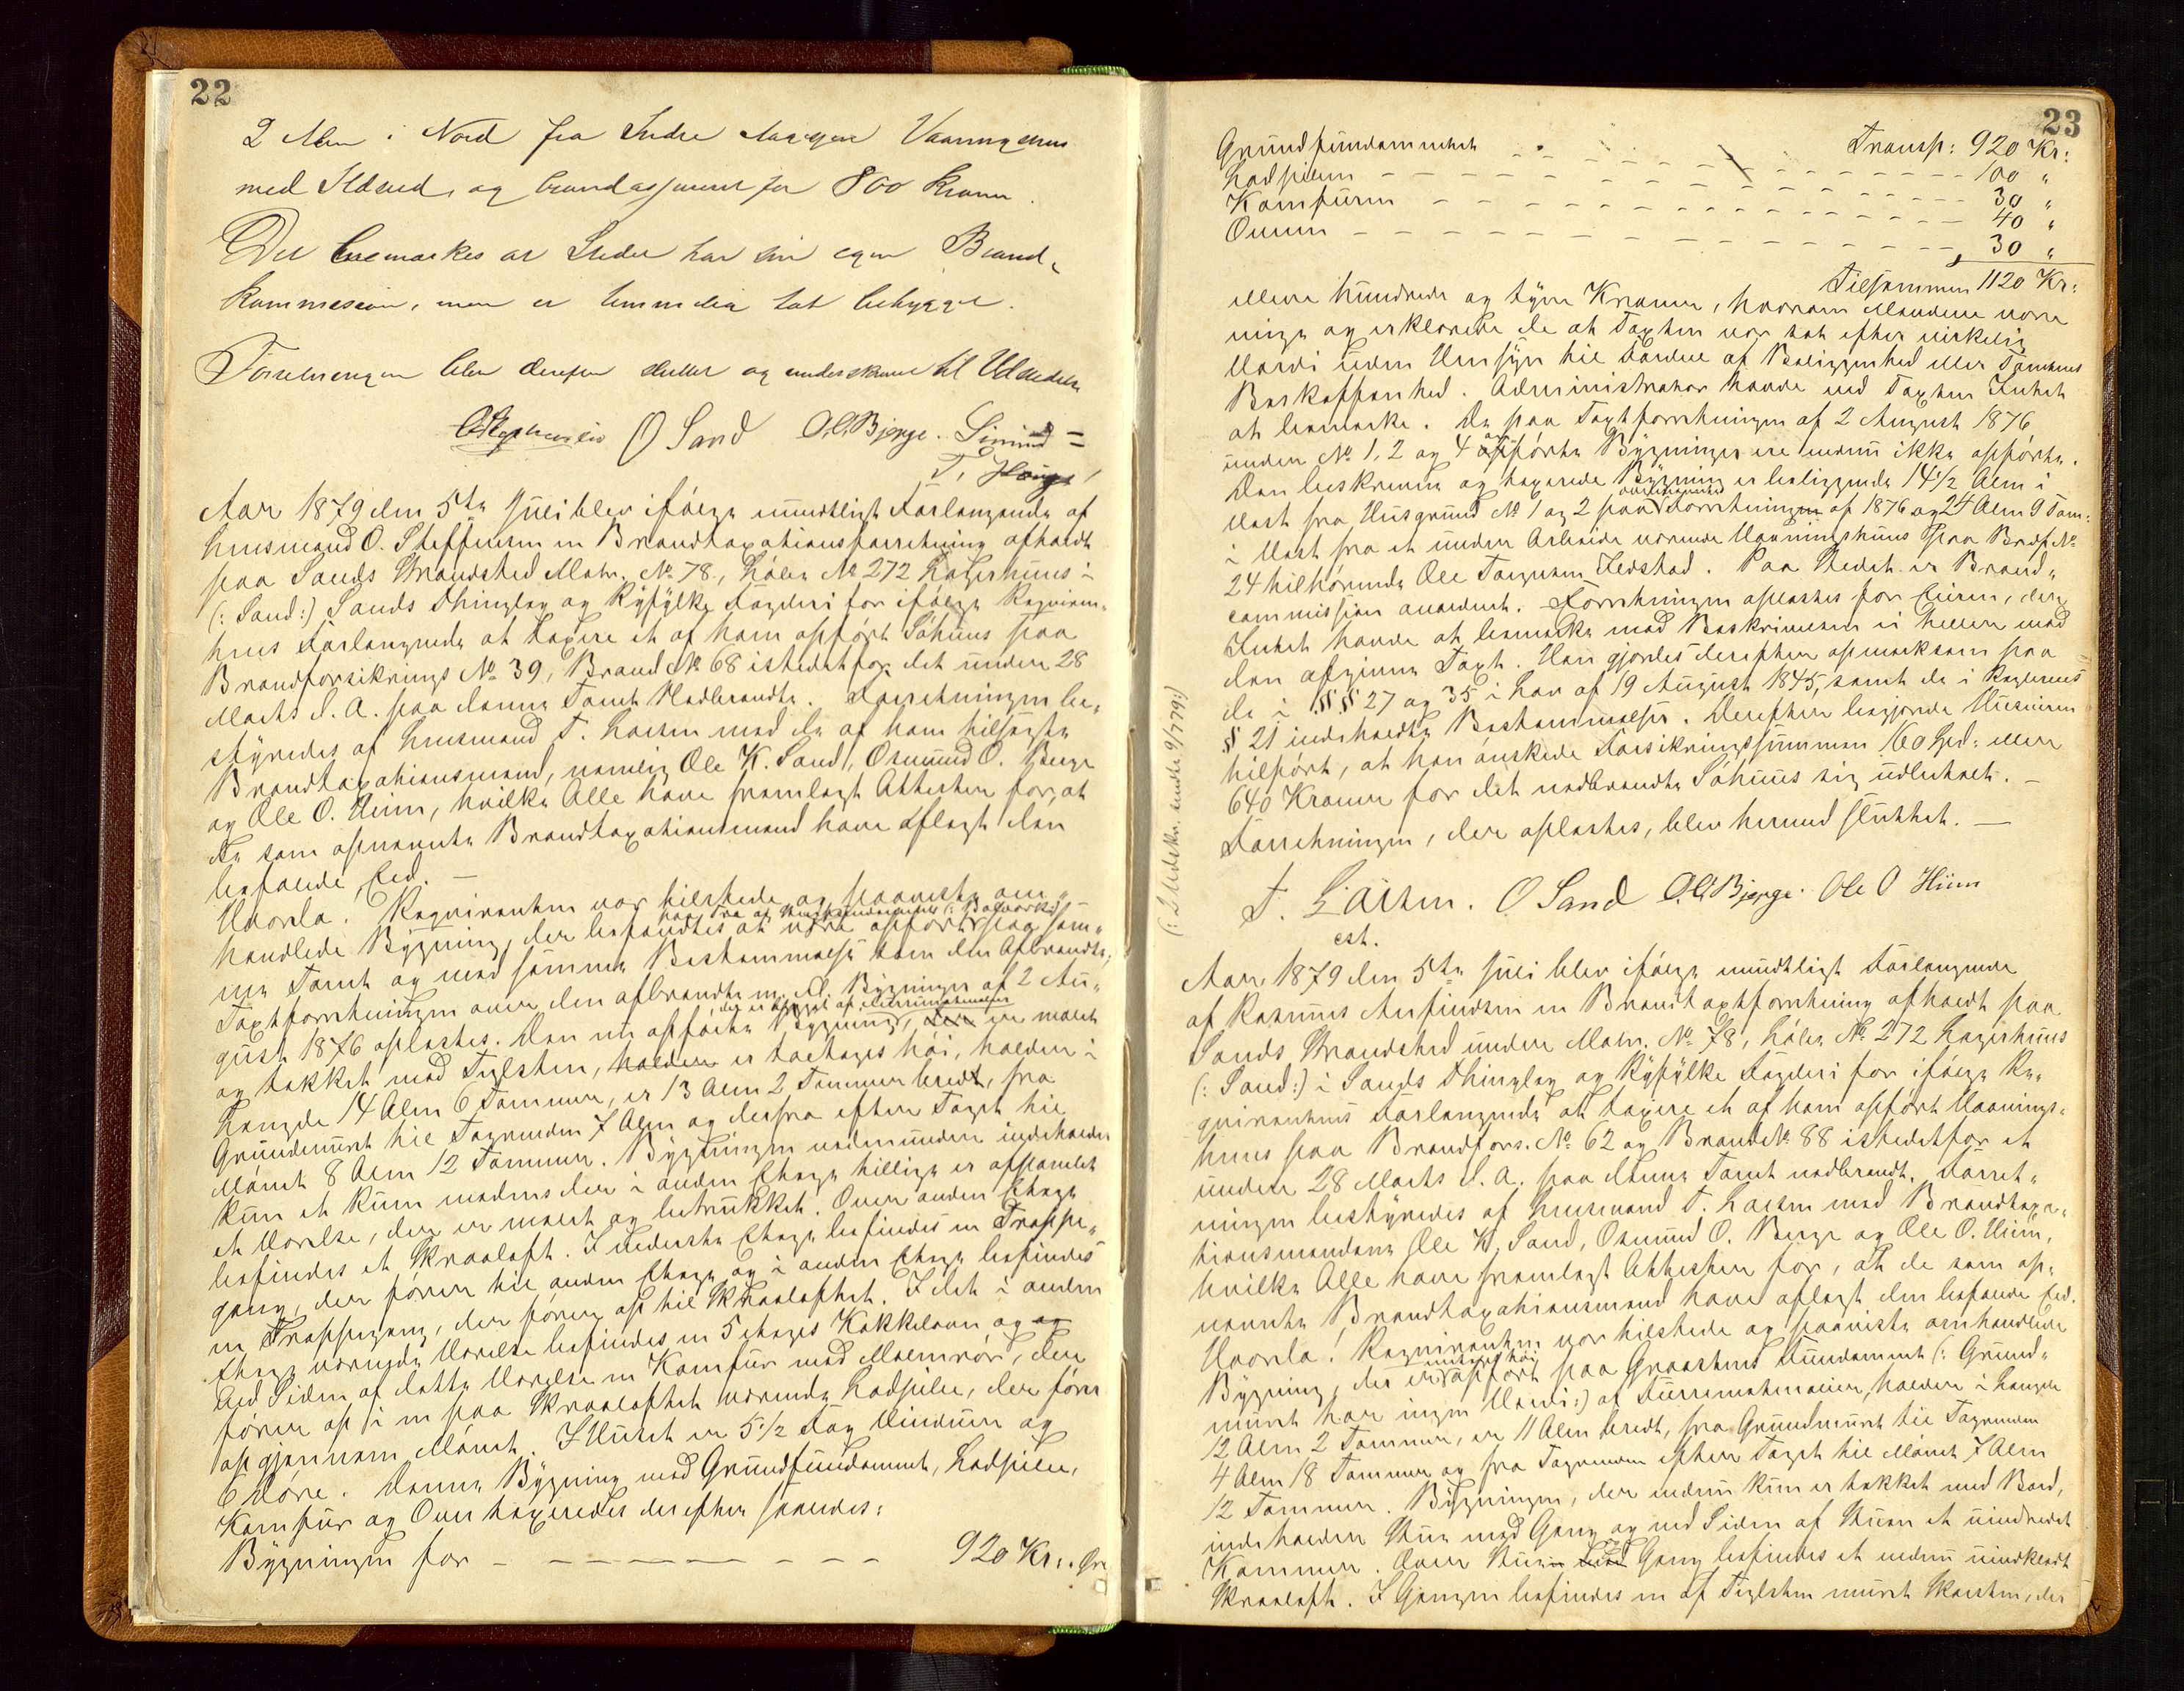 22
2 Alen i Nord fra Indre Vaaningshus
med Ildsted, og brandassureret for 800 Kroner.
Det bemærkes at Stedet har sin egen Brand-
kommission, men er temmelig tæt bebygget.
Forretningen blev derefter sluttet og underskrevet til Udstedelse
O Sand O. O. Bjerge. Simund =
T. Hauge
Aar 1879 den 5te Juli blev ifølge mundtligt Forlangende af
Lensmand O. Steffensen en Brandtaxationsforretning afholdt
paa Sands Strandsted Matr. No 78, Løbe No 272 Lagerhuus i
(: Sand:) Sands Thinglag og Ryfylke Fogderi for ifølge Reqviren-
tens Forlangende at taxere et af ham opført Søhuus paa
Brandforsikrings No 39, Brand No 68 istedetfor det under 28
Marts d. A. paa denne Tomt Nedbrændte. Forretningen be-
styredes af Lensmand T. Larsen med de af ham tilsagte
Brandtaxationsmænd, nemlig Ole K. Sand, Osmund O. Berge
og Ole O. Hiim, hvilke Alle have fremlagt Attester for, at
de som opnævnte Brandtaxationsmænd have aflagt den
befalede Ed. —
Hvorda! Reqvirenten var tilstede og paaviste om-
handlede Bygning, der befandtes at være opført paa sam-
me Tomt og med samme Bestemmelse som den Afbrændte,
Taxtforretningen over den afbrændte m. Fl. Bygninger af 2 Au-
gust 1876 oplæstes. Den nu opførte Bygning, der er bygget af Furrumaterialier er malet
og tækket med Teglsten, holder er toetages høi, holder i
Længde 14 Alen 6 Tommer, er 13 Alen 2 Tommer bredt, fra
Grundmuret til Tagrenden 7 Alen og derfra efter Taget til
Mønet 8 Alen 12 Tommer. Bygningen nedenunder indeholder
kun et Rum medens der i anden Etage tillige er afpanelet
et Værelse, der er malet og betrukket. Over anden Etage
befindes et Skraaloft. I nederste Etage befindes en Trappe-
gang, der fører til anden Etage og i anden Etage befindes
en Trappegang, der fører op til Skraaloftet. I det i anden
Etage værende Værelse befindes en 5 etages Kakkelovn og
ved Siden af dette Værelse en Komfur med Malmrør, der
fører op i en paa Skraaloftet værende Ladpibe, der fører
op gjennem Mønet. I Huset er 5 1/2 Fag Vinduer og
6 Døre. Denne Bygning med Grundfundament, Ladpibe,
Komfur og Ovn taxeredes derefter saaledes:
Bygningen for — — — — — — — 920 Kr: Øre
23
Transp: 920 Kr:
Grundfundamentet - - - - - - 100 "
Ladpiben - - - - - - 30 "
Komfuren - - - - - - 40 "
Ovnen - - - - - - 30 "
Tilsammen 1120 Kr:
elleve hundrede og tyve Kroner, hvorom Mændene vare
enige og erklærede de at Taxten var sat efter virkelig
Værdi uden Hensyn til Fordele af Beliggenhed eller Tomtens
Beskaffenhed. Administrator havde ved Taxten Intet
at bemærke. De paa Taxtforretningen af 2 August 1876
under No 1, 2 og 4 opførte Bygninger ere endnu ikke opførte.
Den beskrevne og taxerede Bygning er beliggende 14 1/2 Alen i
Vest fra Husgrund No 1 og 2 paa Forretningen af 1876 og 24 Alen 9 Tom:
i Vest fra et under Arbeide værende Vaaningshuus paa Brdf. No
24 tilhørende Ole Torgersen Helstad. Paa Stedet er Brand-
commission anordnet. Forretningen oplæstes for Eieren, der
Intet havde at bemærke mod Beskrivelsen ei heller mod
den afgivne Taxt. Han gjordes derefter opmærksom paa
de i §§ 27 og 35 i Lov af 19 August 1845, samt de i Reglernes
§ 21 indeholdte Bestemmelser. Derefter begjærede Huseieren
tilført, at han ønskede Forsikringssummen 160 Spd: eller
640 Kroner for det nedbrændte Søhuus sig udbetalt. —
Forretningen, der oplæstes, blev hermed sluttet. —
(: 2 Udskr. sendte 9/7 79:)
T. Larsen. O Sand O. O. Bjerge. Ole O Hiim
cst.
Aar 1879 den 5te Juli blev ifølge mundtligt Forlangende
af Rasmus Anfindsen en Brandtaxtforretning afholdt paa
Sands Strandsted under Matr. No 78, Løbe No 272 Lagerhuus
(: Sand:) i Sands Thinglag og Ryfylke Fogderi for ifølge Re-
qvirentens Forlangende at taxere et af ham opført Vaanings-
huus paa Brandfors. No 62 og Brand No 88 istedetfor et
under 28 Marts d. A. paa denne Tomt nedbrændt. Forret-
ningen bestyredes af Lensmand T. Larsen med Brandtaxa-
tionsmændene Ole K. Sand, Osmund O. Berge og Ole O. Hiim,
hvilke Alle have fremlagt Attester for, at de som op-
nævnte Brandtaxationsmænd have aflagt den befalede Ed.
Hvorda! Reqvirenten var tilstede og paaviste omhandlede
Bygning, der er opført paa Graastens Fundament (: Grund-
muret har ingen Værdi:) af Furrematerialier, holder i Længde
12 Alen 2 Tommer, er 11 Alen bredt, fra Grundmuret til Tagrenden
4 Alen 18 Tommer og fra Tagrenden efter Taget til Mønet 7 Alen
12 Tommer. Bygningen, der endnu kun er tækket med Bord,
indeholder Stue med Gang og ved Siden af Stuen et uindredet
Kammer. Over Stue og Gang befindes et endnu uindklædt
Skraaloft. I Gangen befindes en af Teglsten muret Skorsten, der